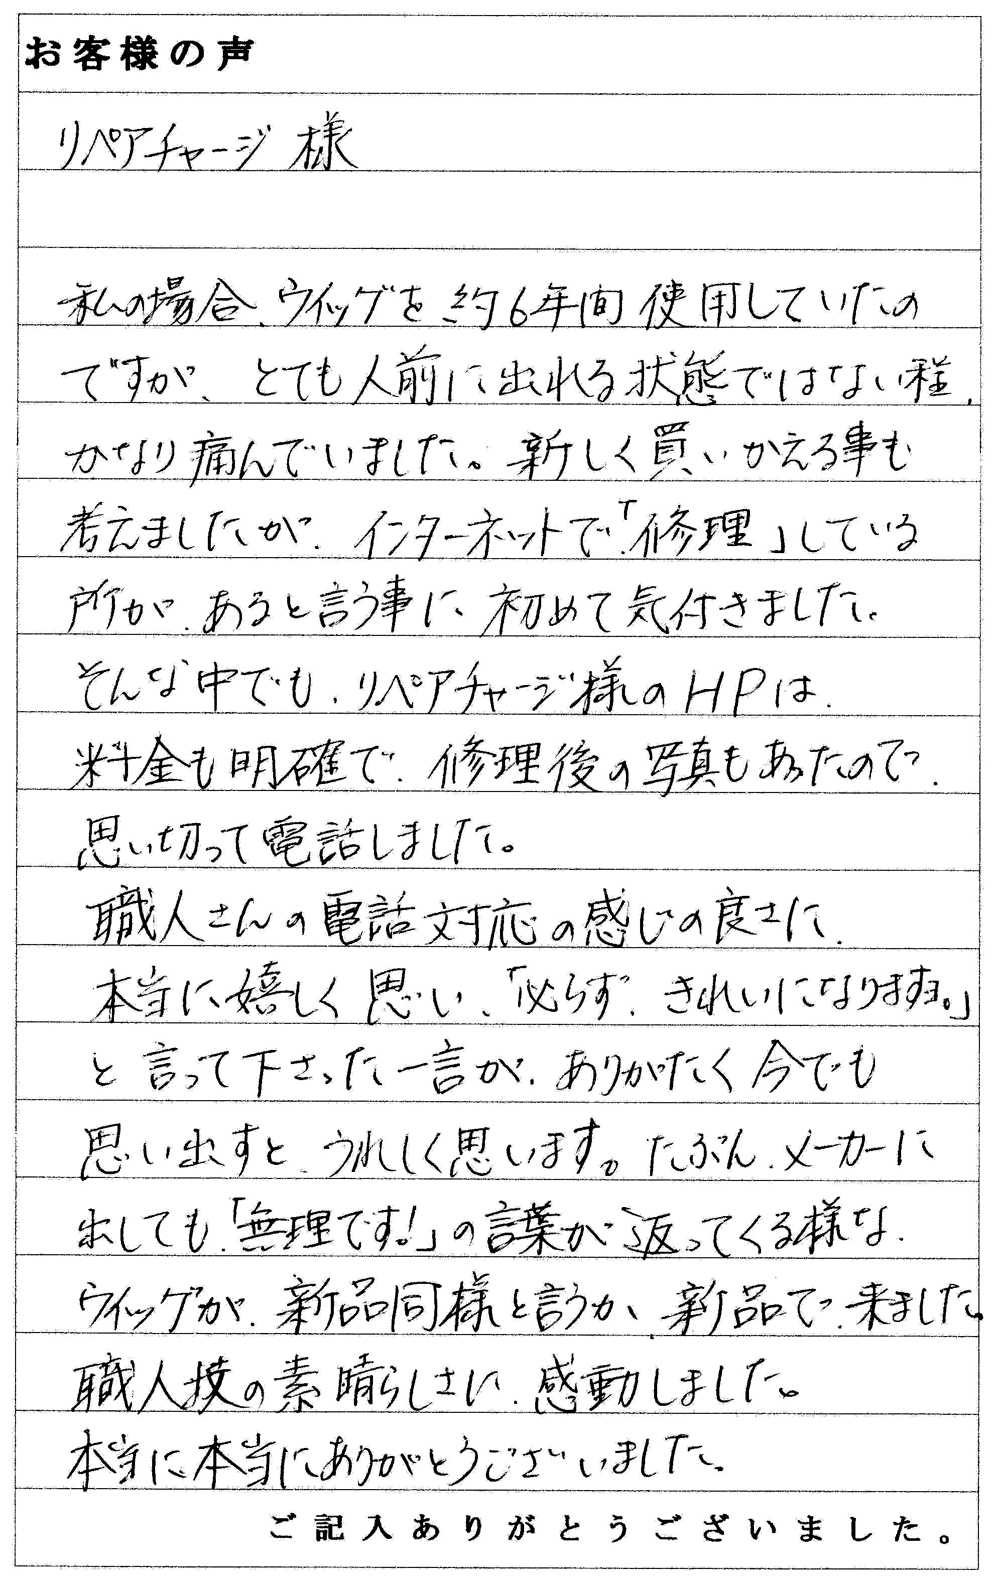 お客様の声
リペアチャージ 様
私の場合、ウイッグを約6年間使用していたの
ですが、とても人前に出れる状態ではない程、
かなり痛んでいました。新しく買いかえる事も
考えましたが、インターネットで、「修理」している
所が、あると言う事に、初めて気付きました。
そんな中でも、リペアチャージ様のHPは、
料金も明確で、修理後の写真もあったので、
思い切って電話しました。
職人さんの電話対応の感じの良さに、
本当に嬉しく思い、「必らず、きれいになりますョ。」
と言って下さった一言が、ありがたく今でも
思い出すと、うれしく思います。たぶん、メーカーに
出しても、「無理です!」の言葉が返ってくる様な、
ウイッグが、新品同様と言うか、新品で、来ました。
職人技の素晴らしさに、感動しました。
本当に、本当にありがとうございました。
ご記入ありがとうございました。